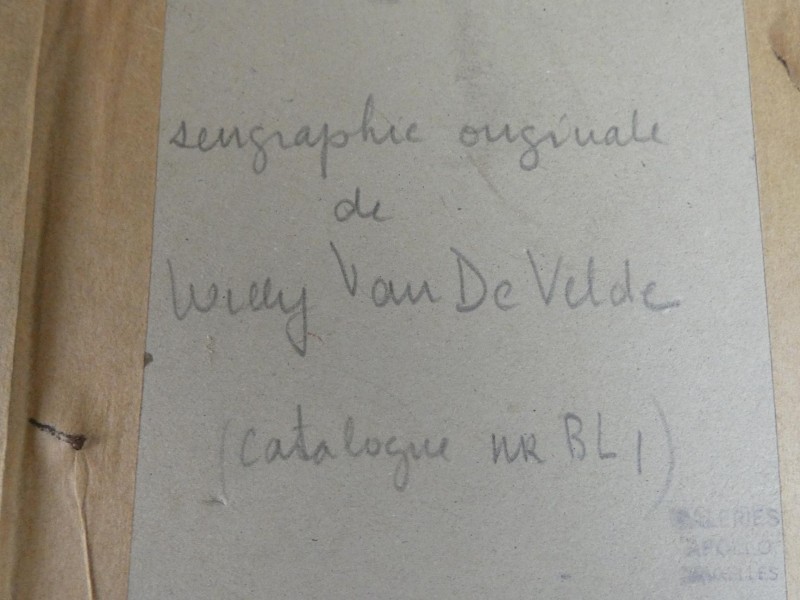 serigraphie originale
de
Willy Van De Velde
(catalogue nr BL 1)
GALERIES
APOLLO